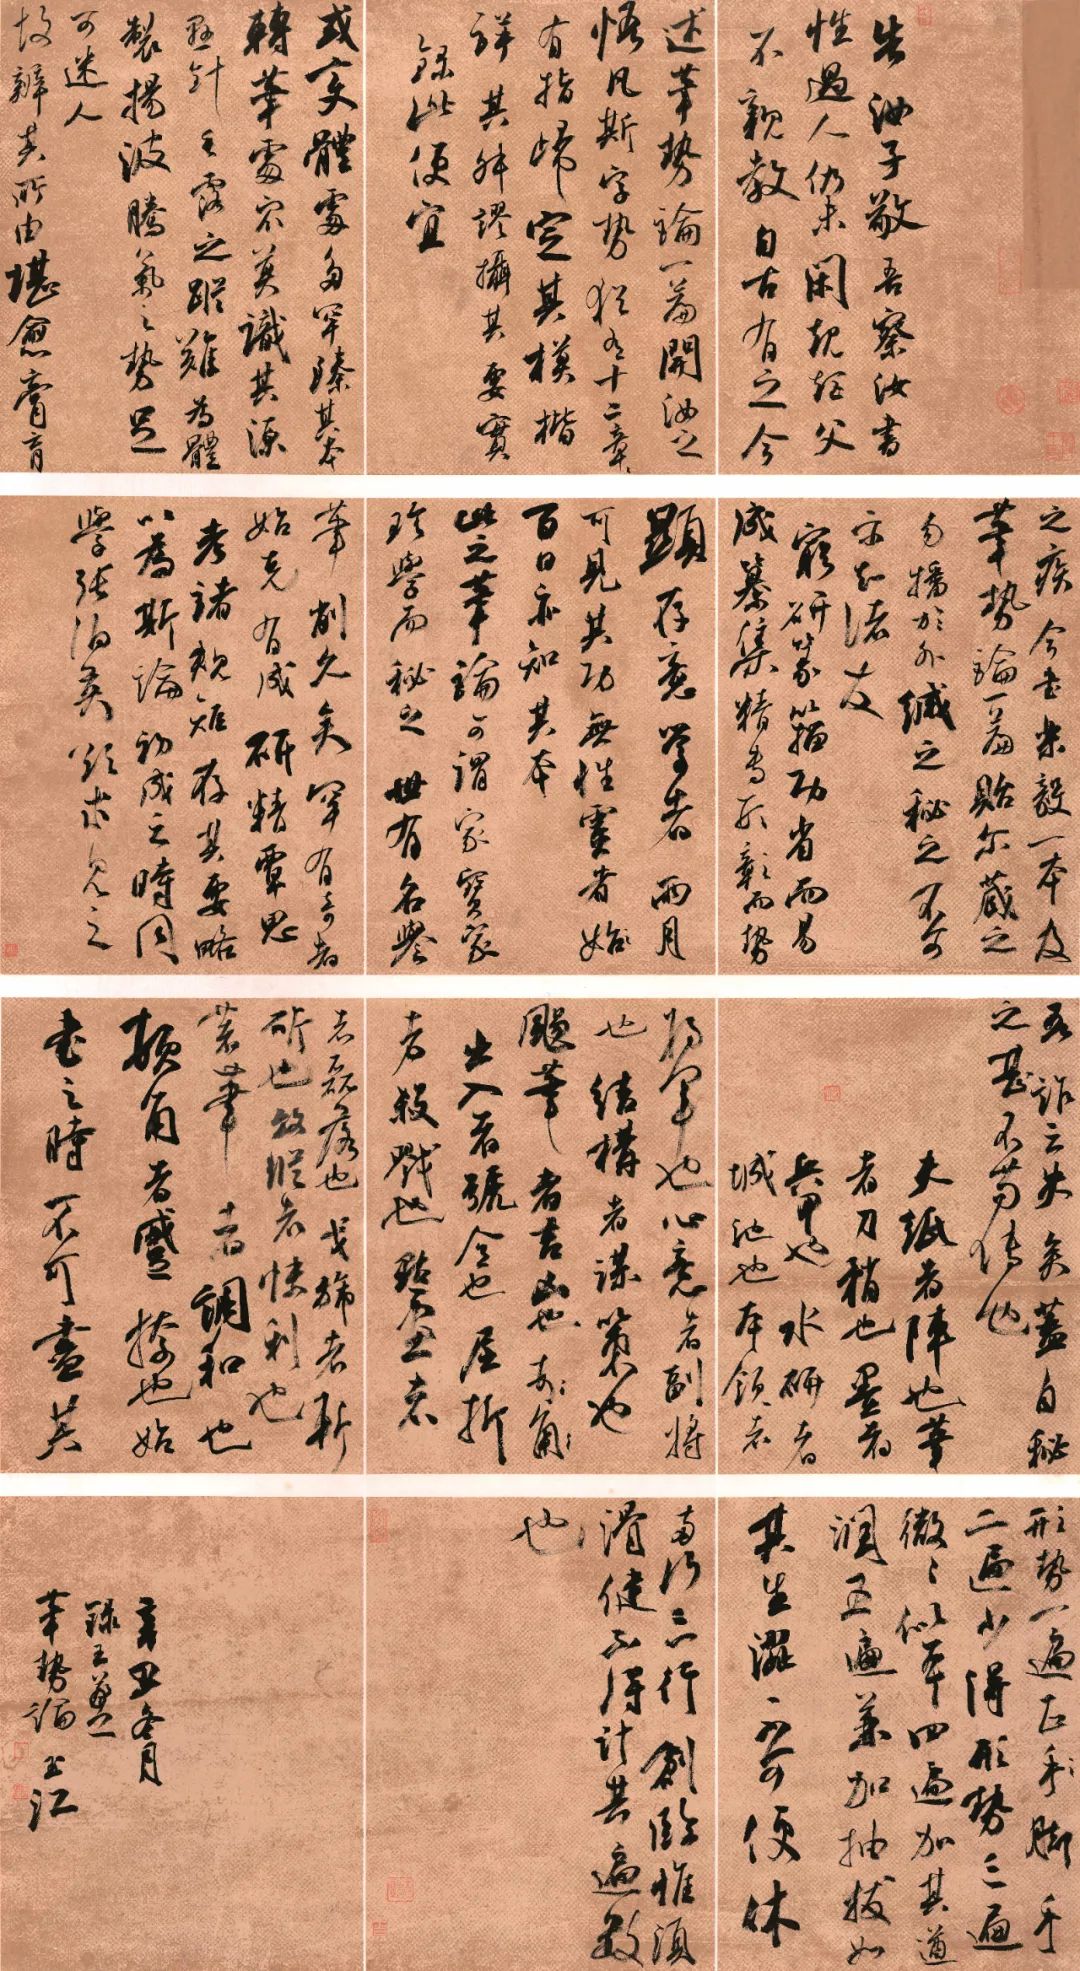 告汝子敬吾察汝書
性過人仍未閑規矩父
不親教自古有之今
述筆勢論一篇開汝之
悟凡斯字勢猶有十二章
有指歸定其模楷
詳其舛謬撮其要實
錄此便宜
或變體處多罕臻其本
轉筆處眾莫識其源
懸針垂露之蹤難為體
製揚波騰氣之勢足
可迷人
故辨其所由堪愈膏肓
之疾今書樂毅一本及
筆勢論一篇貽尔藏之
勿播於外緘之秘之不可
示知諸友
窮研篆籀功省而易
成纂集精專形彰而勢
顯存意學者兩月
可見其功無性靈者始
百日亦知其本
此之筆論可謂家寶家
珍學而秘之世有名譽
筆削久矣罕有奇者
始克有成研精覃思
考諸規矩存其要略
以為斯論初成之時同
學張伯英欲求見之
吾詐云失矣蓋自秘
之甚不苟傳也
夫紙者陣也筆
者刀矟也墨者
兵甲也水硯者
城池也本領者
將軍也心意者副將
也結構者謀策也
颺筆者吉凶也
出入者號令也屈折
者殺戮也點畫者
者磊落也戈旆者斬
斫也放縱者快利也
著筆者調和也
頓角者蹙捺也始
書之時不可盡其
形勢一遍正手脚
二遍少得形勢三遍
微微似本四遍加其遒
潤五遍兼加抽拔如
其生澀不可便休
兩行三行創臨惟須
滑健不得計其遍數
也
辛丑冬月
錄王羲之
筆勢論 玉江